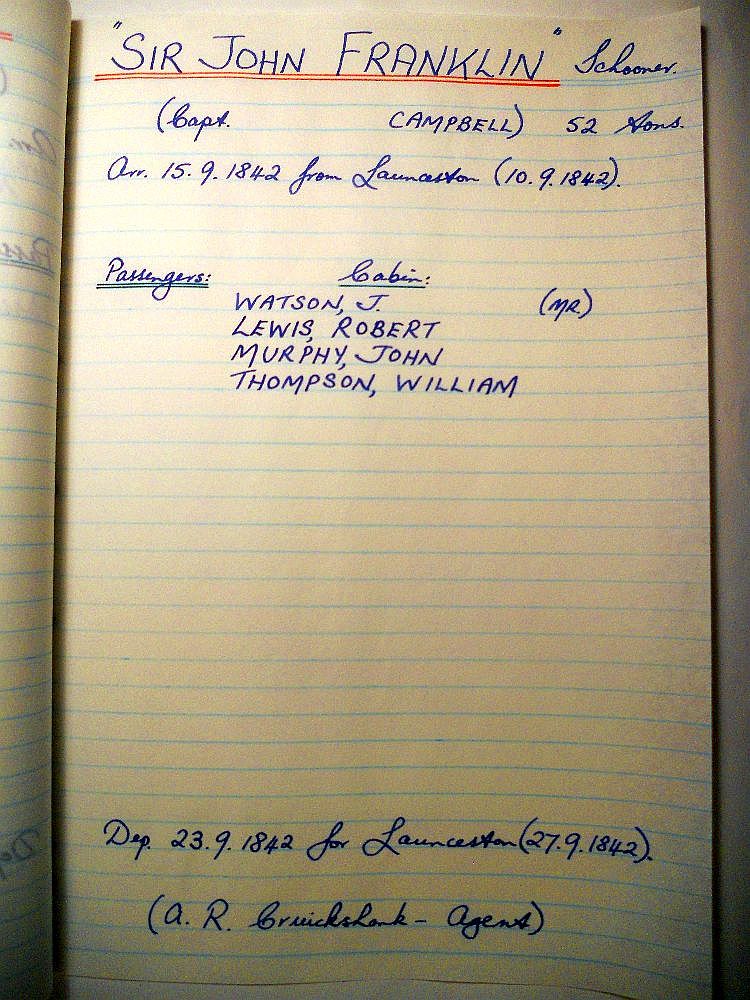 "SIR JOHN FRANKLIN" Schooner.
(Capt. CAMPBELL) 52 tons.
Arr. 15.9.1842 from Launceston (10.9.1842).
Passengers: Cabin:
WATSON, J. (MR)
LEWIS, ROBERT
MURPHY, JOHN
THOMPSON, WILLIAM
Dep. 23.9.1842 for Launceston (27.9.1842).
(A. R. Cruickshank - Agent)